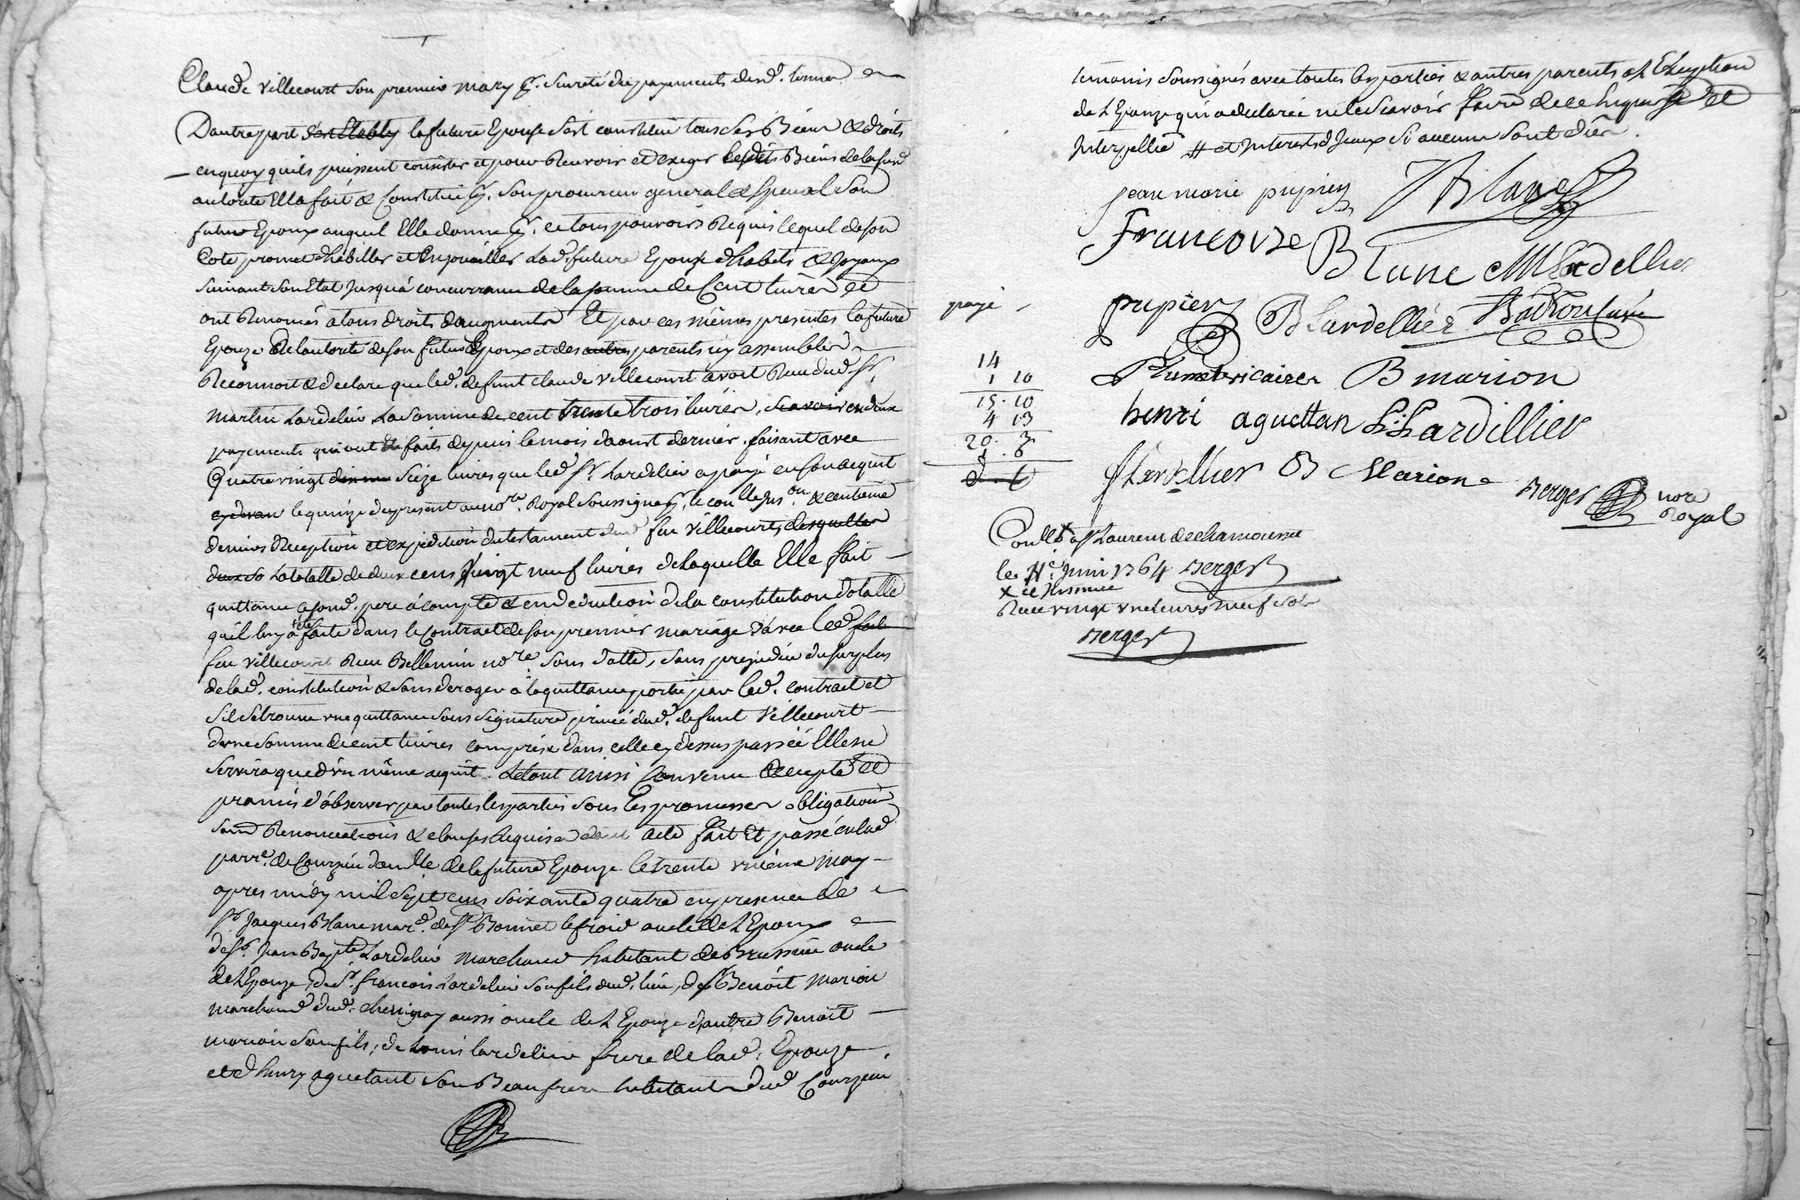 Claude Villecourt son premier mary pr. sureté des payements desd. termes
D'autre part s'est Etably la future Epouse s'est constitué tous ses Biens & droits
en quoy qu'ils puissent consister et pour Recevoir et Exiger lesdits Biens de la susd
autorité Elle a fait & Constitué pr. son procureur general & special son
futur Epoux auquel Elle donne pr. ce tous pouvoirs Requis lequel de son
Coté promet d'habiller et Enjoailler lad. future Epouse d'habits & Joyaux
suivant son Etat Jusqu'à concurrance de la somme de Cent livres et
ont Renoncés a tous droits d'augments Et par ces mêmes presentes la future
Epouze De l'autorité de son futur Epoux et des autres parents icy assemblés
Reconnoit & declare que led. defunt claude villecourt avoit Reçu dud. Sr.
martin Lardelier La Somme de cent trente trois livres, scavoir en deux
payements qui ont été faits depuis le mois d'aoust dernier. faisant avec
Quatre vingt Seize livres que led Sr. Lardelier a payé en son acquit
cy devant le quinze du present au nore. Royal soussigné pr. le con lle Ins on & centieme
deniers Reception et expedition du testament dud feu villecourt, desquelles
deux so La totalle de deux cens vingt neuf livres de laquelle Elle fait
quittance a sond. pere à compte & en deduction de la constitution dotalle
qu'il luy a été faite dans le Contract de son premier mariage avec led feu
feu villecourt Reçu Bellemin nore. sous datte, sans prejudice du surplus
de lad. constitution & sans deroger à la quittance portée par led. contract et
s'il se trouve une quittance sous signature privée dud. defunt villecourt
d'une somme de cent livres comprise dans celle cy dessus passée Elle ne
servira que d'un même acquit. Le tout ainsi Convenu accepté et
promis d'observer par toutes les parties sous les promesses obligations
soum Renonciations & clauses Requises dont acte fait Et passé en lad
parre. de Courzieu domlle de la future Epouze le trente unieme may
apres midy mil sept cens soixante quatre en presence de
Sr. Jacques Blanc mard. de St Bonnet le froid oncle de l'Epoux
de Sr. Jean Bapte Lardelier marchand habitant de Brussieu oncle
de l'Epouze, de Sr. francois Lardelier son fils dud. lieu, de Sr Benoit marion
marchand dud. chevigny aussi oncle de l'Epouze d'autre Benoit
marion son fils, de Louis lardelier frere de lad. Epouze
et d'henry aguetant son Beaufrere habitant dud Courzieu
temoins soussignés avec toutes les parties & autres parents a l'Exception
de l'Epouze qui a declaré ne le scavoir faire de ce Enquise et
Interpellée # et Interests d'Jceux si aucuns sont dûs.
jean marie pupier JBlanc
Francoise Blanc MLardellier
payé
pupier B Lardellier Badrou curé
14
1 10
15 . 10
4 13
20 . 3
1 . 6
B marion
henri aguettan L. Lardillier
f Lardellier B Marion
Berger nore Royal
Conllé a St Laurent de chamousset
le 11e. Juin 1764 Berger
x ce Insinué
Reçu vingt une livres neuf sols
Berger